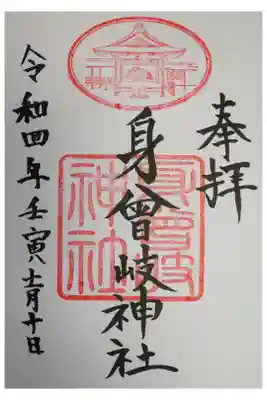 奉拝
身曾岐神社
身曾岐
神社
令和四年壬寅十一月十日